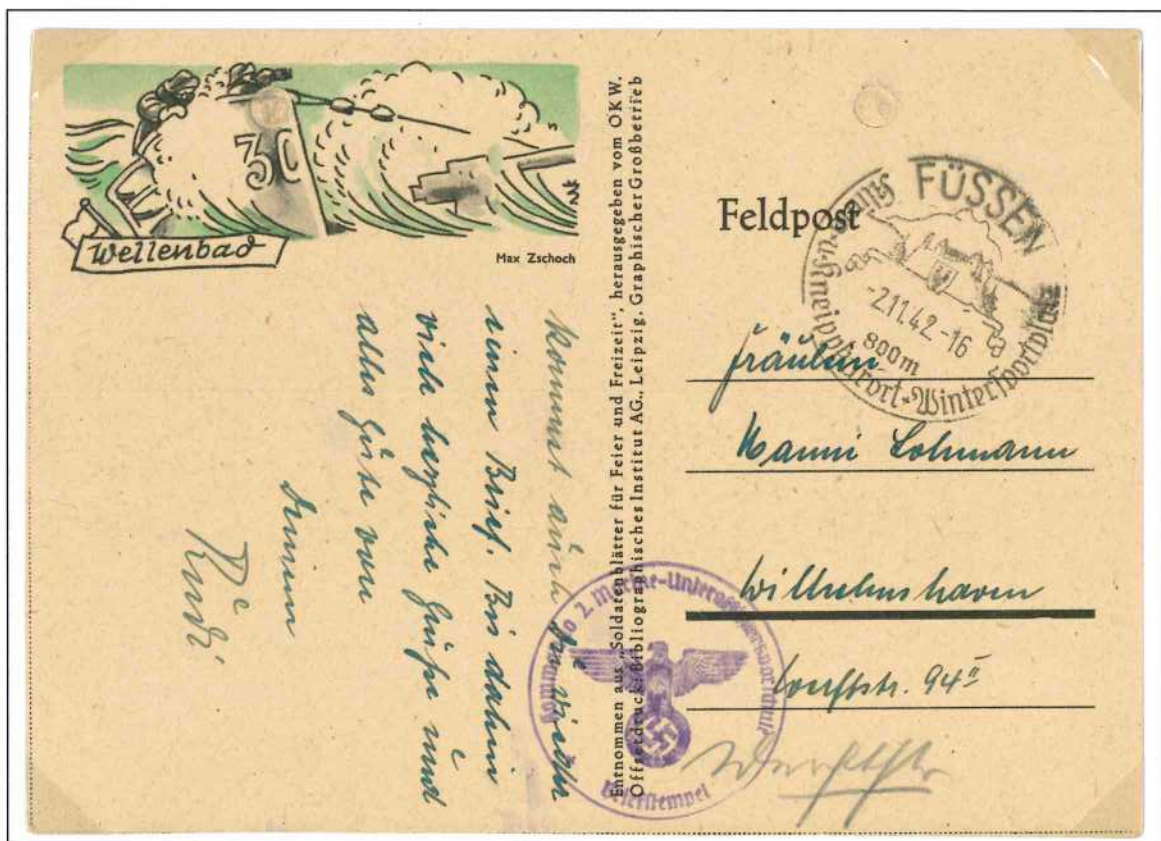 30
Wellenbad
Max Zschoch
kommt auch mal wieder
einen Brief. Bis dahin
viele herzliche Grüße und
alles Gute von
Deinem
Rudi
Entnommen aus „Soldatenblätter für Feier und Freizeit“, herausgegeben vom OKW.
Offsetdruck: Bibliographisches Institut AG., Leipzig. Graphischer Großbetrieb
Feldpost
FÜSSEN
-2.11.42.-16
800m
Kneippkurort-Wintersportplatz
Fräulein
Hanni Lohmann
Wilhelmshaven
94II
Werftstr
Kommando 2. Marine-Unteroffizier
Briefstempel